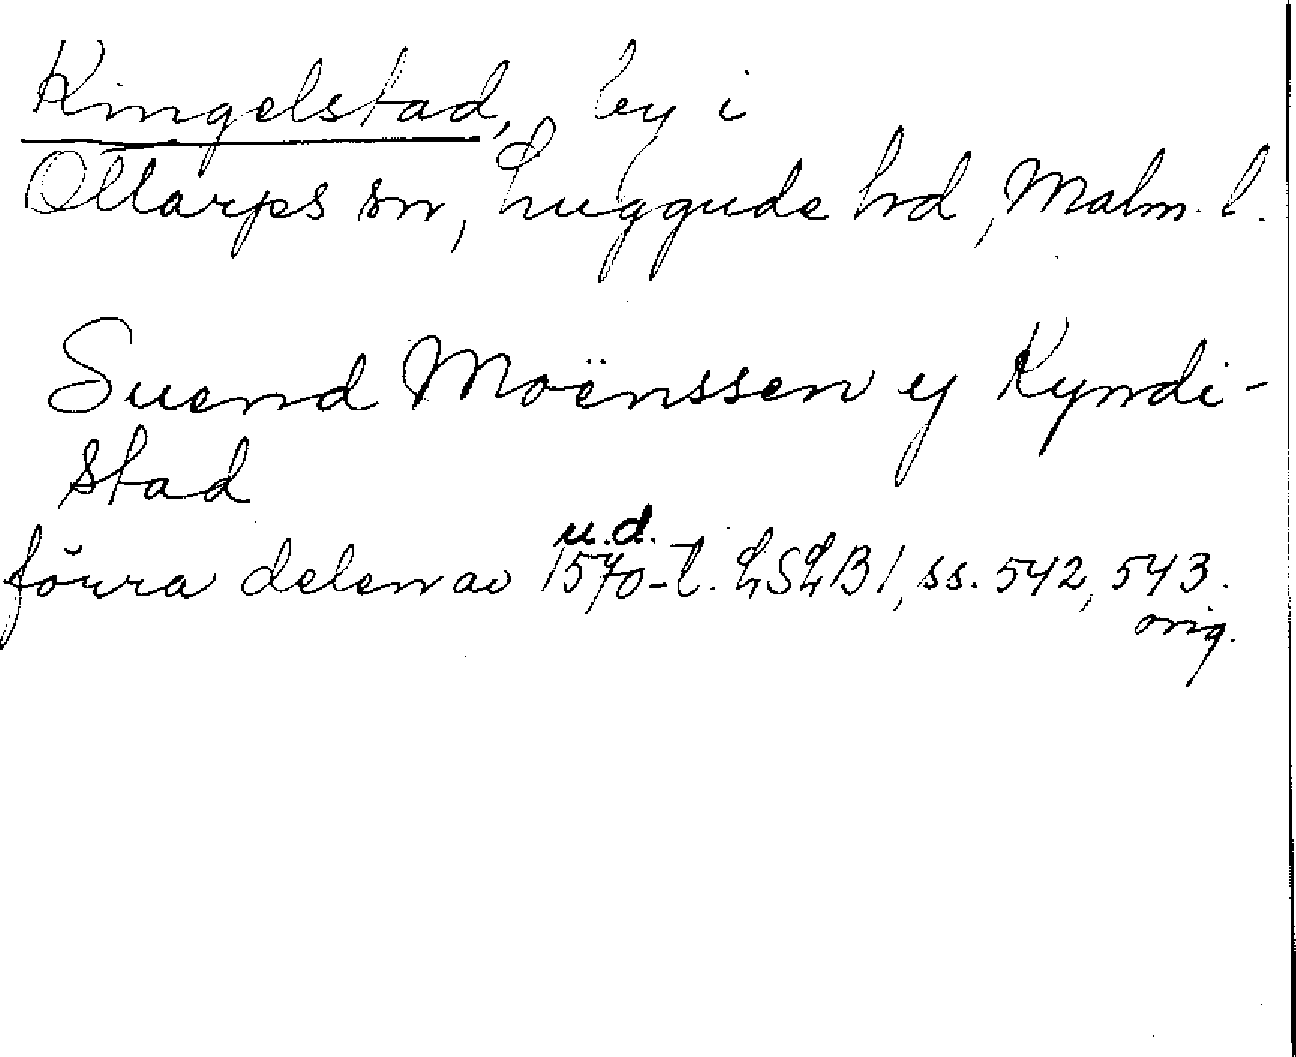 Kingelstad, by i
Ottarps sn, Luggude hd, Malm. l.
Suend Moënssen y Kyndi-
stad
u.d.
förra delen av 1570-t. LSLB 1, ss. 542, 543.
orig.